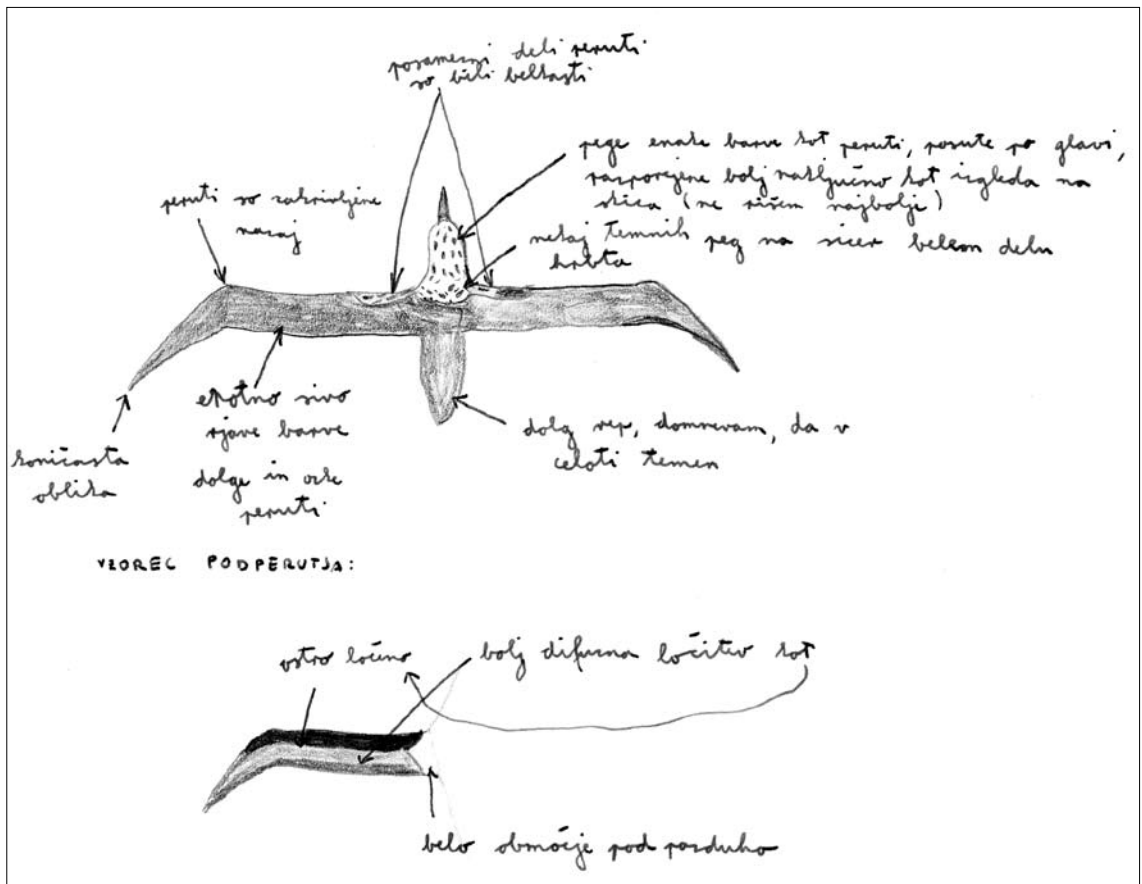 posamezni deli peruti
so bili belkasti
pege enake barve kot peruti, posute po glavi,
razporejene bolj naključno kot izgleda na
skica (ne rišem najbolje)
peruti so zakrivljene
nazaj
nekaj temnih peg na sicer belem delu
hrbta
enotno sivo
rjave barve
dolge in ozke
peruti
koničasta
oblika
dolg rep, domnevam, da v
celoti temen
VZOREC PODPERUTJA:
ostro ločeno
bolj difuzna ločitev kot
belo območje pod pazduho